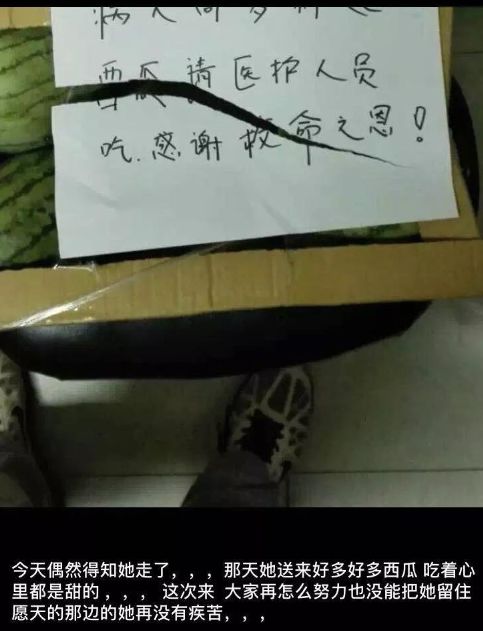 西瓜请医护人员
吃.感谢救命之恩!
今天偶然得知她走了，，，那天她送来好多好多西瓜 吃着心
里都是甜的，，， 这次来 大家再怎么努力也没能把她留住
愿天的那边的她再没有疾苦，，，